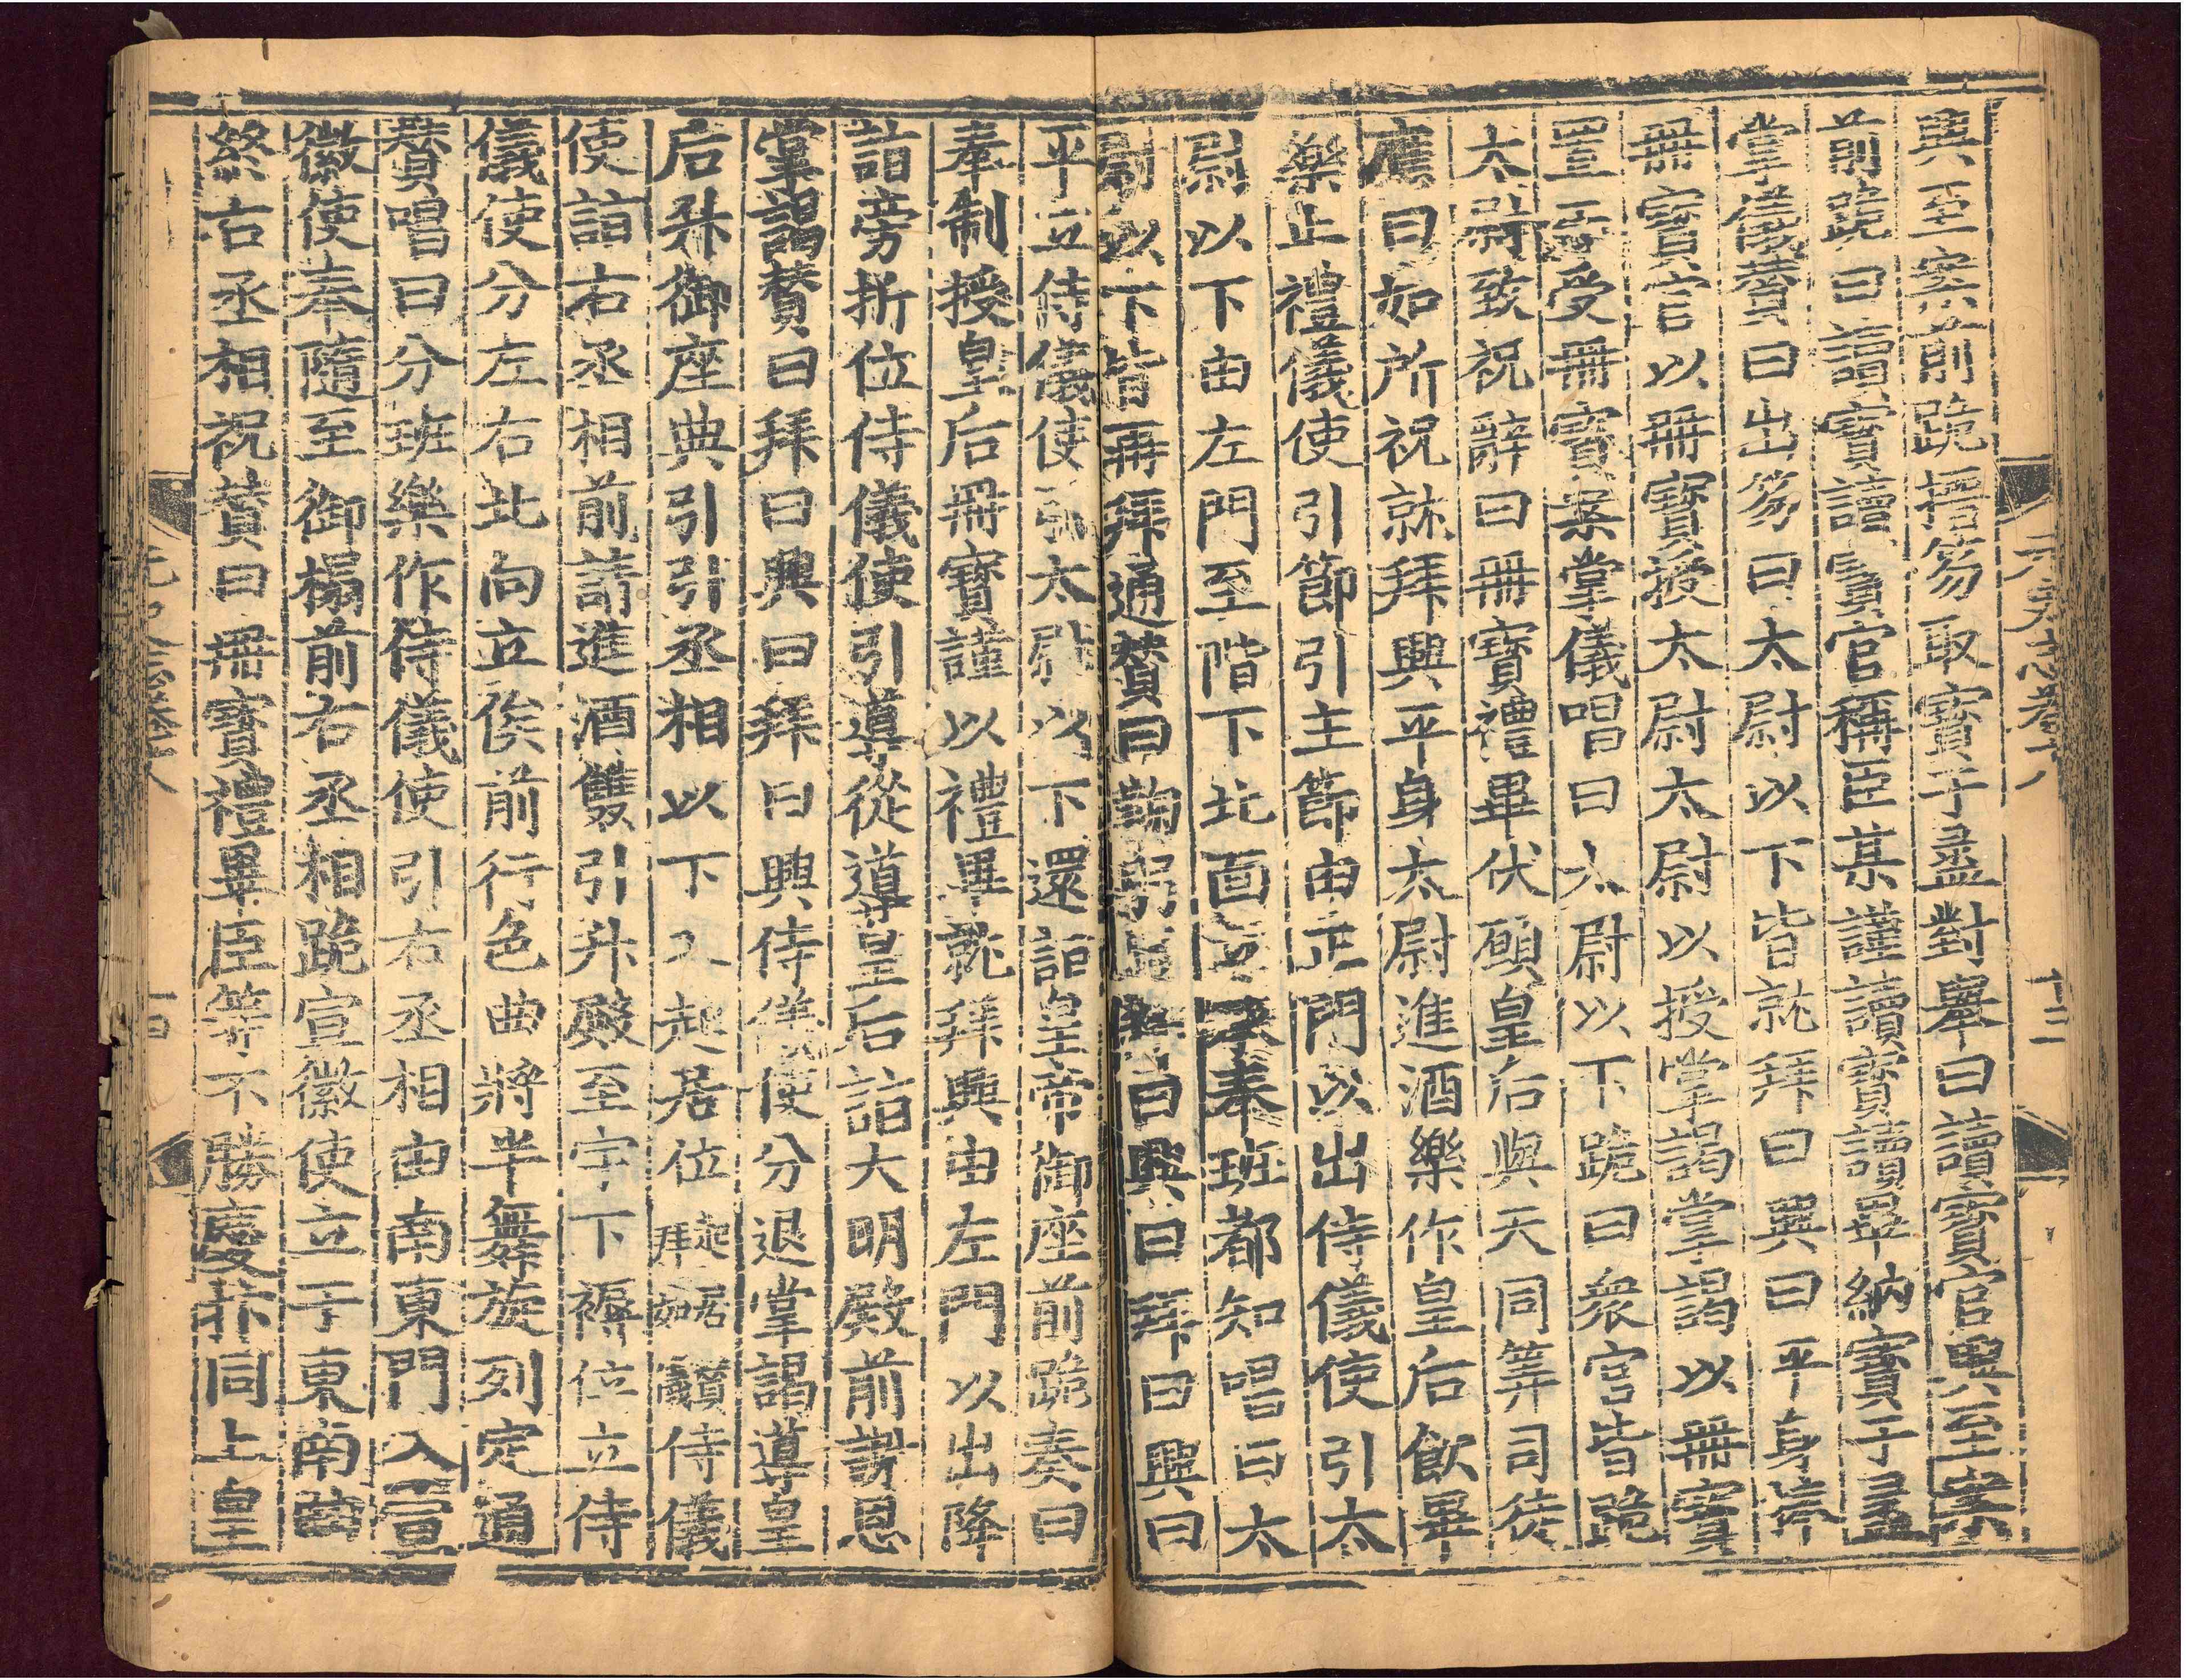 興至案前跪搢笏取寶于盝對舉曰讀寶官興至案
前跪曰讀寶讀寶官稱臣某謹讀寶讀畢納寶于盝
掌儀贊曰出笏曰太尉以下皆就拜曰興曰平身
冊寶官以冊寶授太尉太尉以授掌謁掌謁以冊寶
置受冊寶案掌儀唱曰太尉以下跪曰衆官皆跪
太尉致祝辭曰冊寶禮畢伏願皇后與天同筭司徒
應曰如所祝就拜興平身太尉進酒樂作皇后飲畢
樂止禮儀使引節引主節由正門以出侍儀使引太
尉以下由左門至階下北面立奉班都知唱曰太
尉以下皆再拜通贊曰鞠躬曰興曰拜曰興曰
平立侍儀使引太尉以下還詣皇帝御座前跪奏曰
奉制授皇后冊寶謹以禮畢就拜興由左門以出降
詣旁折位侍儀使引導從導皇后詣大明殿前謝恩
掌謁贊曰拜曰興曰拜曰興侍儀使分退掌謁導皇
后升御座典引引丞相以下入起居位起居拜如儀侍儀
使詣右丞相前請進酒雙引升殿至宇下褥位立侍
儀使分左右北向立俟前行色曲將半舞旋列定通
贊唱曰分班樂作侍儀使引右丞相由南東門入宣
徽使奉隨至御榻前右丞相跪宣徽使立于東南曲
終右丞相祝贊曰冊寶禮畢臣等不勝慶抃同上皇
十三
十四